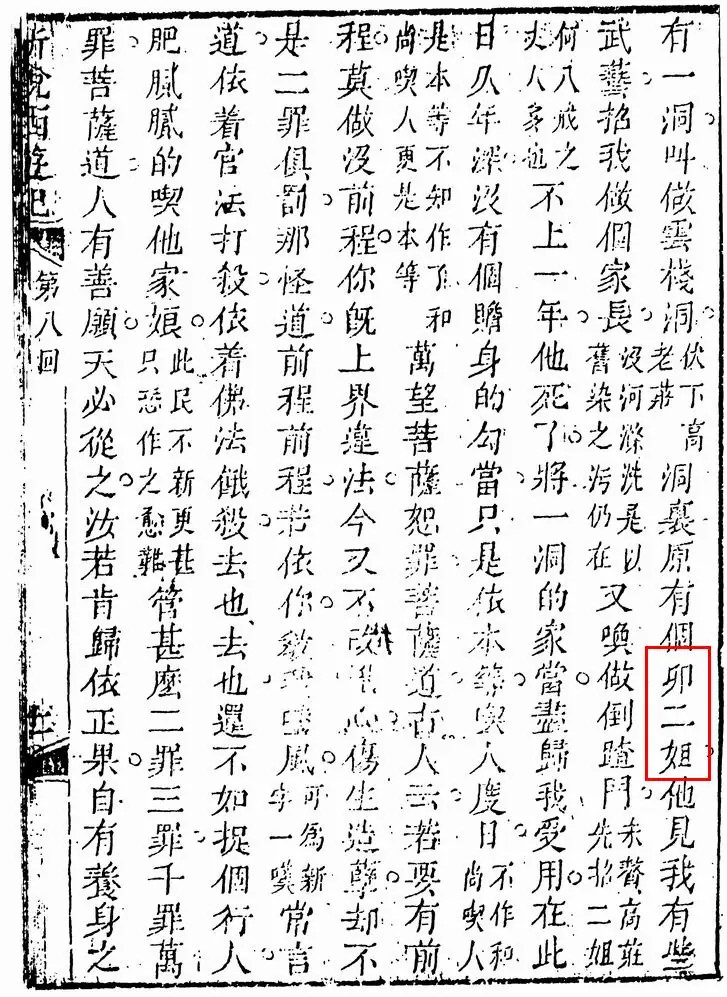 有一洞叫做雲棧洞伏下高老莊洞裏原有個卯二姐他見我有些
武藝招我做個家長沒河滌洗是以舊染之污仍在又喚做倒蹅門未贅高莊先招二姐
何八戒之丈人多也不上一年他死了將一洞的家當盡歸我受用在此
日久年深沒有個贍身的勾當只是依本等喫人度日不作和尚喫人
是本等不知作了和尚喫人更是本等萬望菩薩恕罪菩薩道古人云若要有前
程莫做沒前程你旣上界違法今又不改心傷生造孽却不
是二罪俱罰那怪道前程前程若依你風可爲新字一嘆常言
道依着官法打殺依着佛法餓殺去也去也還不如捉個行人
肥膩膩的喫他家娘此民不新更甚只恐作之愈難管甚麼二罪三罪千罪萬
罪菩薩道人有善願天必從之汝若肯歸依正果自有養身之
西遊記 第八回